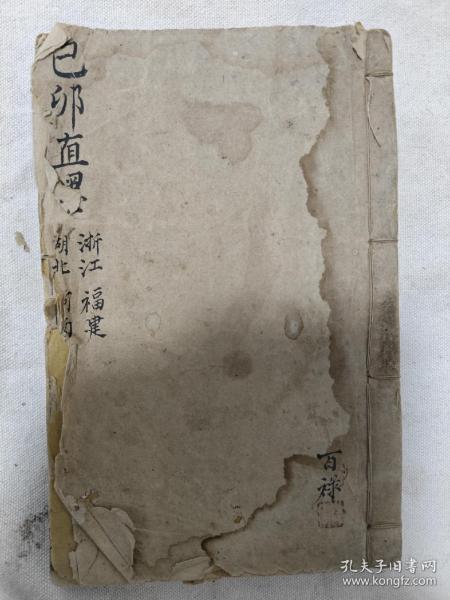 己卯直墨
浙江 福建
湖北 河南
百祿
孔夫子旧书网
www.kongfz.com